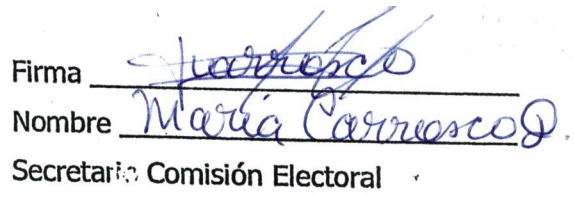 Firma
Nombre María Carrasco P.
Secretaria Comisión Electoral